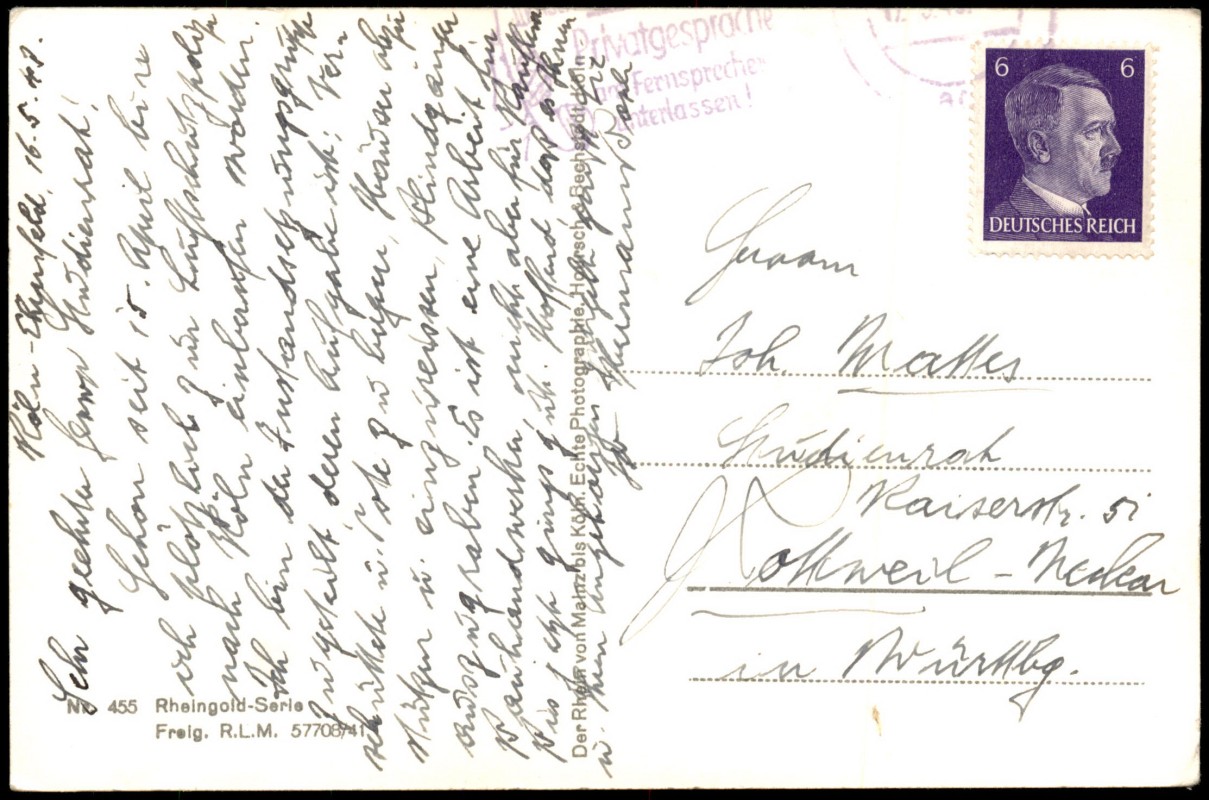 Köln-Ehrenfeld, 16.5.43.
Sehr geehrter Herr Studienrat!
Schon seit 15. April bin
ich plötzlich zur Luftschutzpolizei
nach Köln einberufen worden.
Ich bin der Instandsetzungsgruppe
zugeteilt, deren Aufgabe ist: Ver-
schüttete u. Tote zu bergen, Häuser abzu-
stützen u. einzureissen, Blindgänger
auszugraben. Es ist eine Arbeit für
Bauhandwerker, nicht aber für
Bis jetzt gings gut. Hoffend, daß es Ihnen
u. Ihren Angehörigen geht, grüßt
Ihr Hermann
Privatgespräche
am Fernsprecher
unterlassen!
6 6
DEUTSCHES REICH
Herrn
Joh. Mattes
Studienrat
Kaiserstr. 51
Rottweil - Neckar
in Württbg.
Der Rhein von Mainz bis Köln. Echte Photographie. Hoursch & Bechstedt, Köln
Nr. 455 Rheingold-Serie
Freig. R.L.M. 57708/41